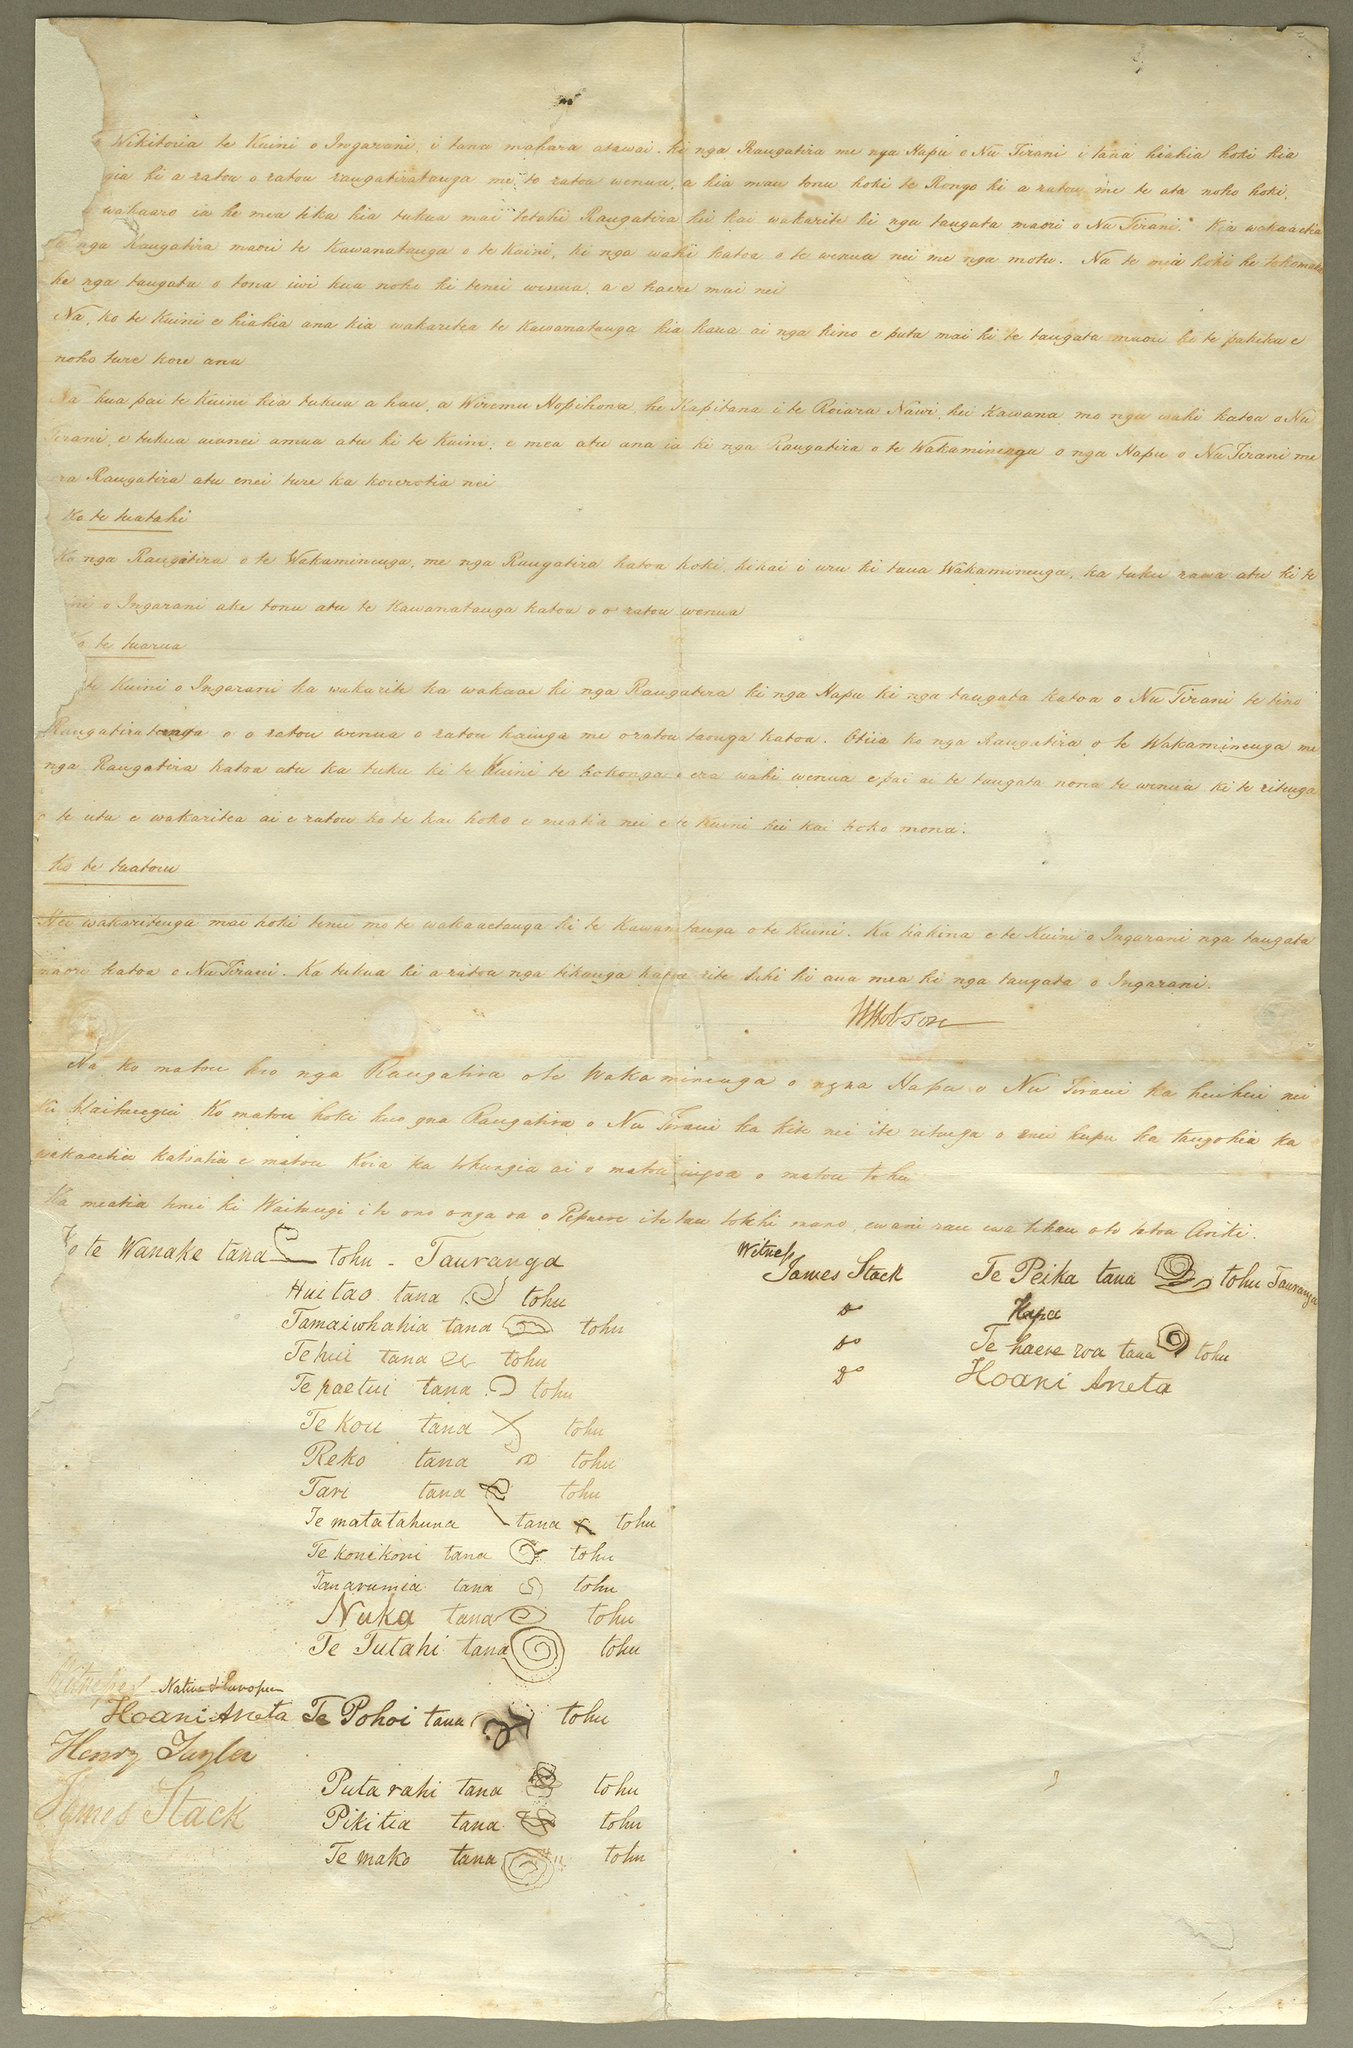 Wikitoria te Kuini o Ingarani, i tana mahara atawai ki nga Rangatira me nga Hapu o Nu Tirani i tana hiahia hoki kia
gia ki a ratou o ratou rangatiratanga me to ratou wenua, a kia mau tonu hoki te Rongo ki a ratou me te ata noho hoki,
wakaaro ia he mea tika kia tukua mai tetahi Rangatira hei kai wakarite ki nga tangata maori o Nu Tirani. Kia wakaaetia
e nga Rangatira maori te Kawanatanga o te Kuini, ki nga wahi katoa o te wenua nei me nga motu. Na te mea hoki he tokomaha
ke nga tangata o tona iwi kua noho ki tenei wenua, a e haere mai nei
Na, ko te Kuini e hiahia ana kia wakaritea te Kawanatanga kia kaua ai nga kino e puta mai ki te tangata maori ki te pakeha e
noho ture kore ana
Na kua pai te Kuini kia tukua a hau, a Wiremu Hopihona, he Kapitana i te Roiara Nawi, hei Kawana mo nga wahi katoa o Nu
Tirani, e tukua aianei amua atu ki te Kuini; e mea atu ana ia ki nga Rangatira o te Wakaminenga o nga Hapu o Nu Tirani me
era Rangatira atu enei ture ka korerotia nei
Ko te tuatahi
Ko nga Rangatira o te Wakaminenga, me nga Rangatira katoa hoki, kihai i uru ki taua Wakaminenga, ka tuku rawa atu ki te
ini o Ingarani ake tonu atu te Kawanatanga katoa o o ratou wenua
Ko te tuarua
te Kuini o Ingarani ka wakarite ka wakaae ki nga Rangatira ki nga Hapu ki nga tangata katoa o Nu Tirani te tino
Rangatiratanga o o ratou wenua o ratou kainga me o ratou taonga katoa. Otiia ko nga Rangatira o te Wakaminenga me
nga Rangatira katoa atu ka tuku ki te Kuini te hokonga o era wahi wenua e pai ai te tangata nona te wenua ki te ritenga
o te utu e wakaritea ai e ratou ko te kai hoko e meatia nei e te Kuini hei kai hoko mona.
Ko te tuatoru
Hei wakaritenga mai hoki tenei mo te wakaaetanga ki te Kawanatanga o te Kuini. Ka tiakina e te Kuini o Ingarani nga tangata
maori katoa o Nu Tirani. Ka tukua ki a ratou nga tikanga katoa rite tahi ki ana mea ki nga tangata o Ingarani.
W Hobson
Na ko matou ko nga Rangatira o te Wakaminenga o nga Hapu o Nu Tirani ka huihui nei
ki Waitangi Ko matou hoki ko nga Rangatira o Nu Tirani ka kite nei i te ritenga o enei kupu ka tangohia ka
wakaaetia katoatia e matou Koia ka tohungia ai o matou ingoa o matou tohu
Ka meatia tenei ki Waitangi i te ono o nga ra o Pepuere i te tau kotahi mano, e waru rau e wa tekau o to tatou Ariki.
Ko te Wanake tana tohu - Tauranga
Huitao tana tohu
Tamaiwhahia tana tohu
Te hui tana tohu
Te paetui tana tohu
Te kou tana tohu
Reko tana tohu
Tari tana tohu
Te matatahuna tana tohu
Te konikoni tana tohu
Tanarumia tana tohu
Nuka tana tohu
Te Tutahi tana tohu
Witnesses Native & European
Hoani Aneta Te Pohoi tana tohu
Henry Tayler
Putarahi tana tohu
James Stack
Pikitia tana tohu
Te mako tana tohu
Witness
James Stack Te Peika tana tohu Tauranga
Do Kapa
Do Te haereroa tana tohu
Do Hoani Aneta